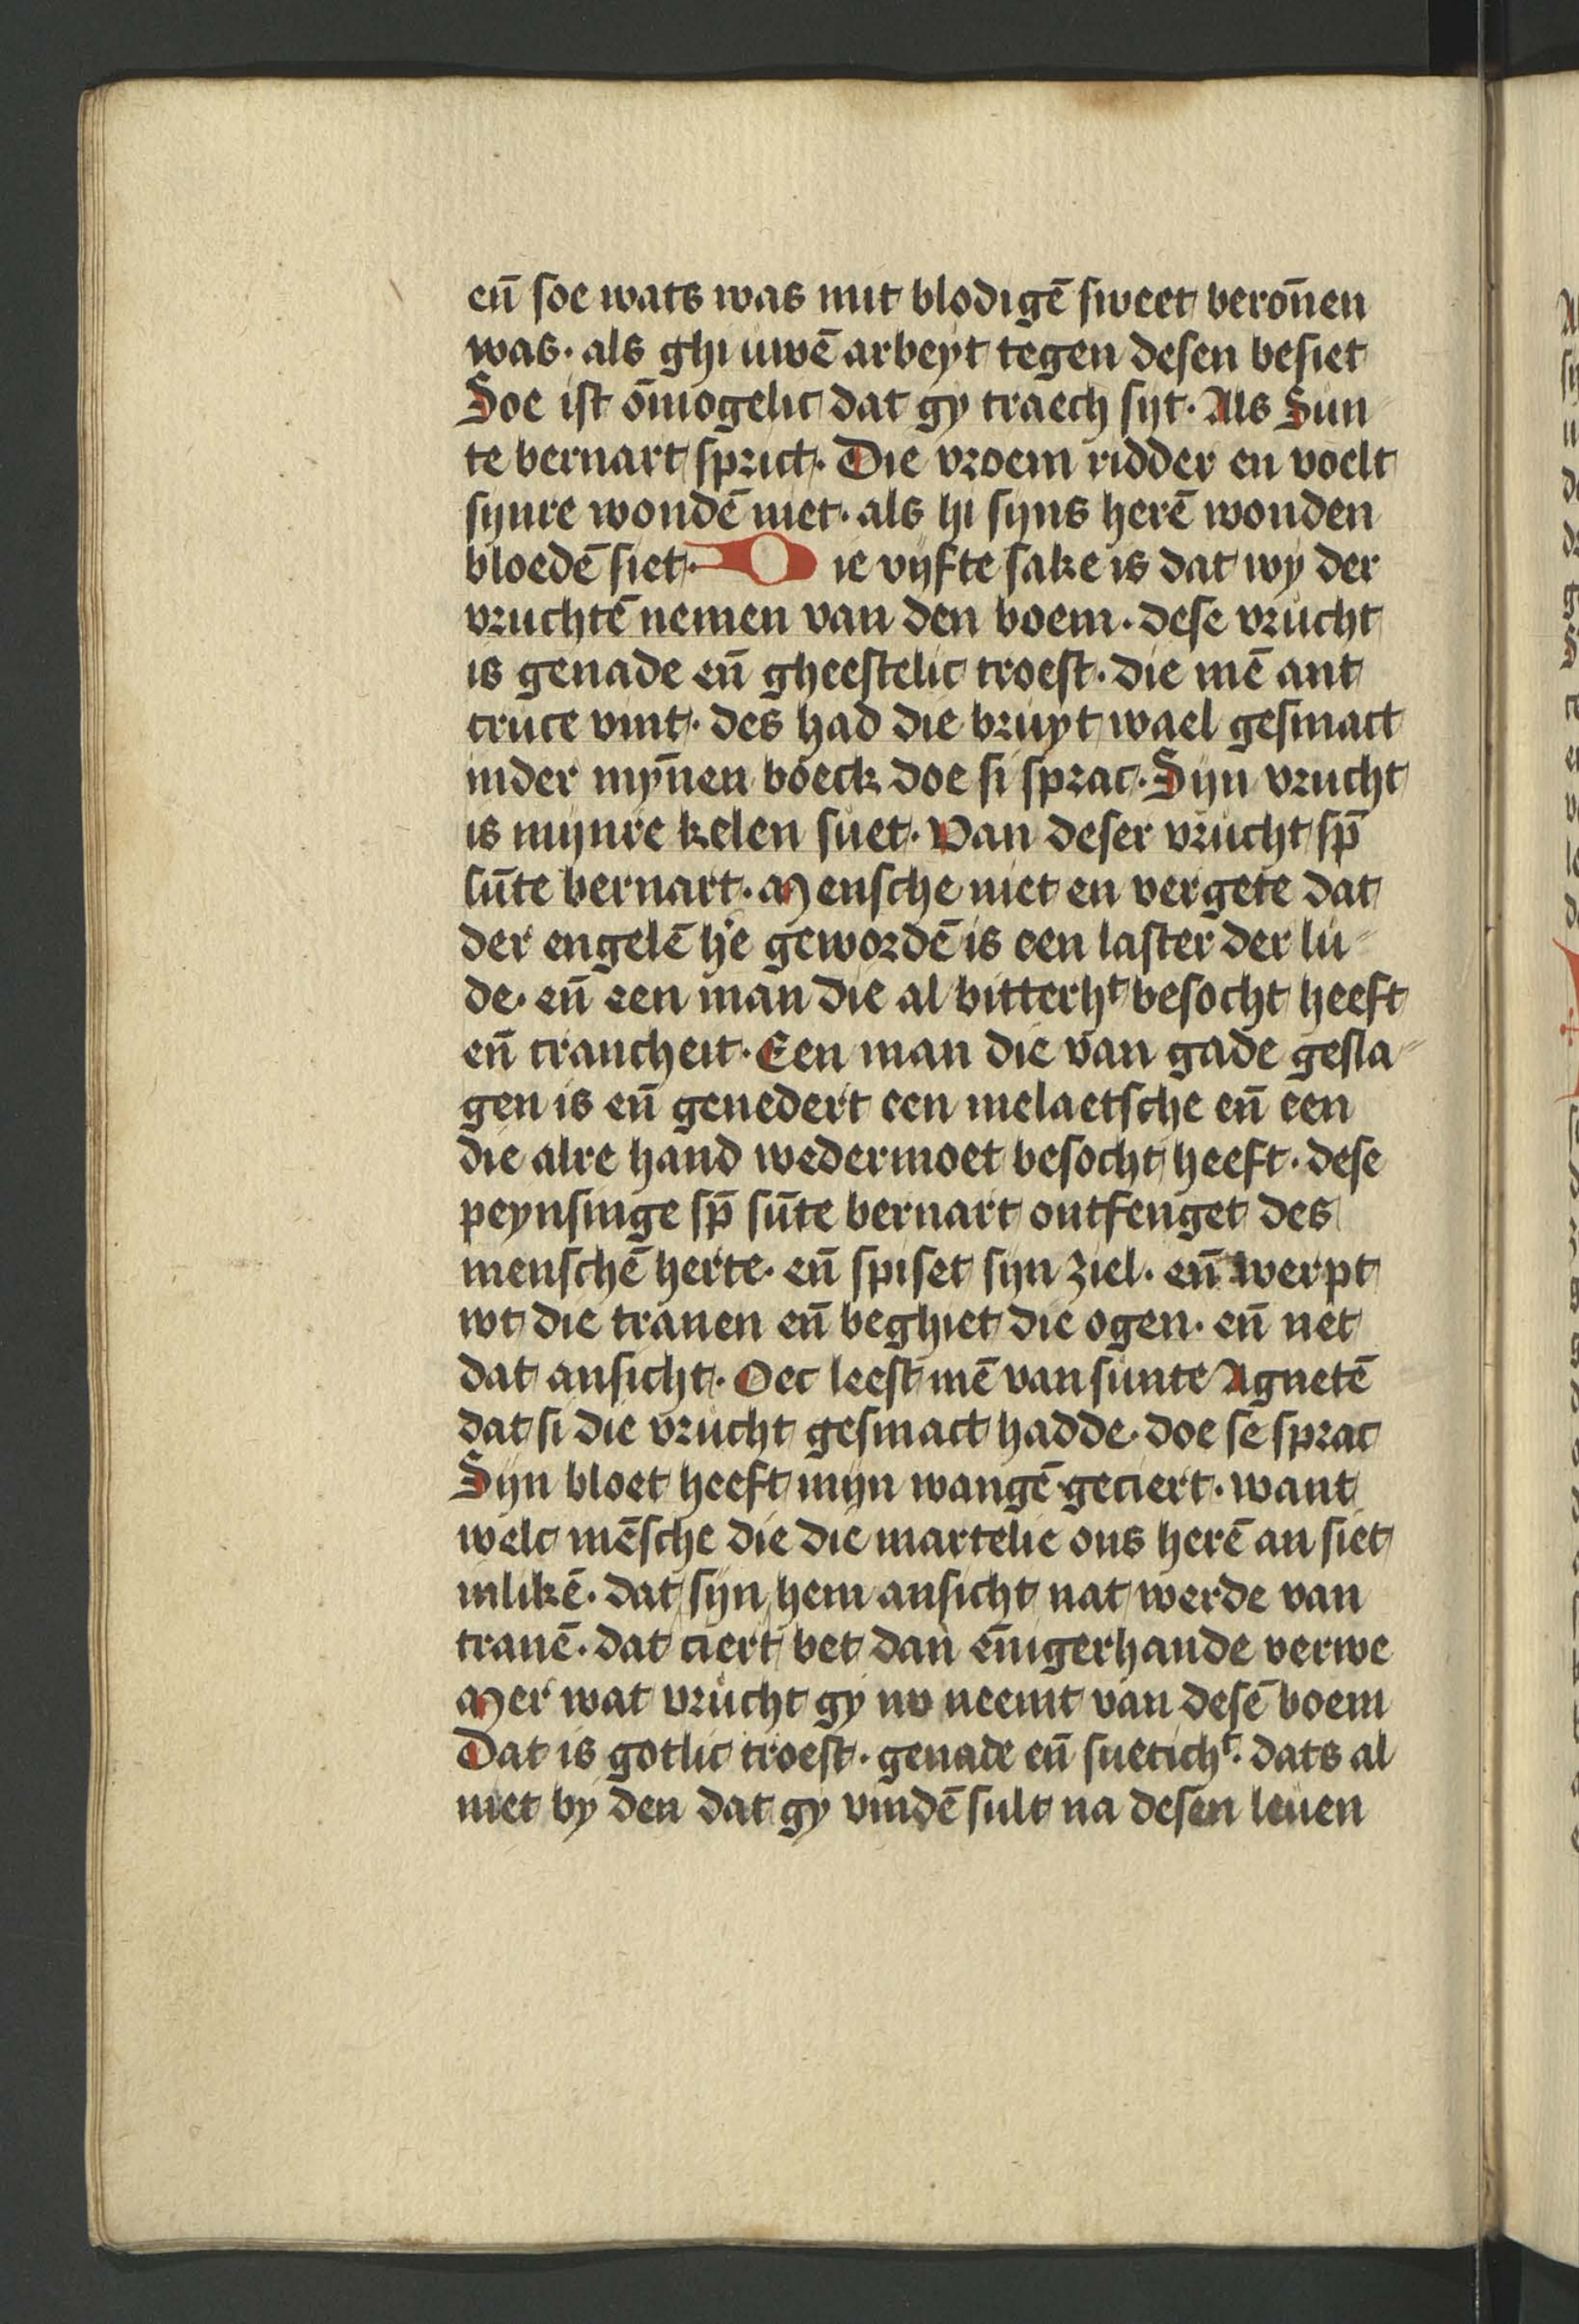 en̄ soe wats was mit blodigē sweet beron̄en
was· als ghi uwē arbeyt tegen desen besiet
Soe ist ōmogelic dat gy traech syt· Als Sun
te bernart sprict· Die vroem ridder en voelt
synre wondē niet· als hi syns herē wonden
bloedē siet· Die vijfte sake is dat wy der
vruchtē nemen van den boem· dese vrucht
is genade en̄ gheestelic troest· die mē ant
cruce vint· des had die bruyt wael gesmact
inder myn̄en boeck doe si sprac· Syn vrucht
is mynre kelen suet· Van deser vrucht sp̄
sūte bernart· Mensche niet en vergete dat
der engelē he gewordē is een laster der lu
de· en̄ een man die al bitterht besocht heeft
en̄ crancheit· Een man die van gade gesla
gen is en̄ genedert een melaetsche en̄ een
die alre hand wedermoet besocht heeft· dese
peynsinge sp̄ sūte bernart ontfenget des
menschē herte· en̄ spiset syn ziel· en̄ werpt
wt die tranen en̄ beghiet die ogen· en̄ net
dat ansicht· Oec leest mē van sunte Agnetē
dat si die vrucht gesmact hadde· doe se sprac
Syn bloet heeft myn wangē geciert· want
welc mēsche die die martelie ons herē an siet
inlikē· dat syn hem ansicht nat werde van
tranē· dat ciert bet dan ēnigerhande verwe
Mer wat vrucht gy nv neemt van desē boem
Dat is gotlic troest· genade en̄ suetichᵗ· dats al
niet by den dat gy vindē sult na desen leuen